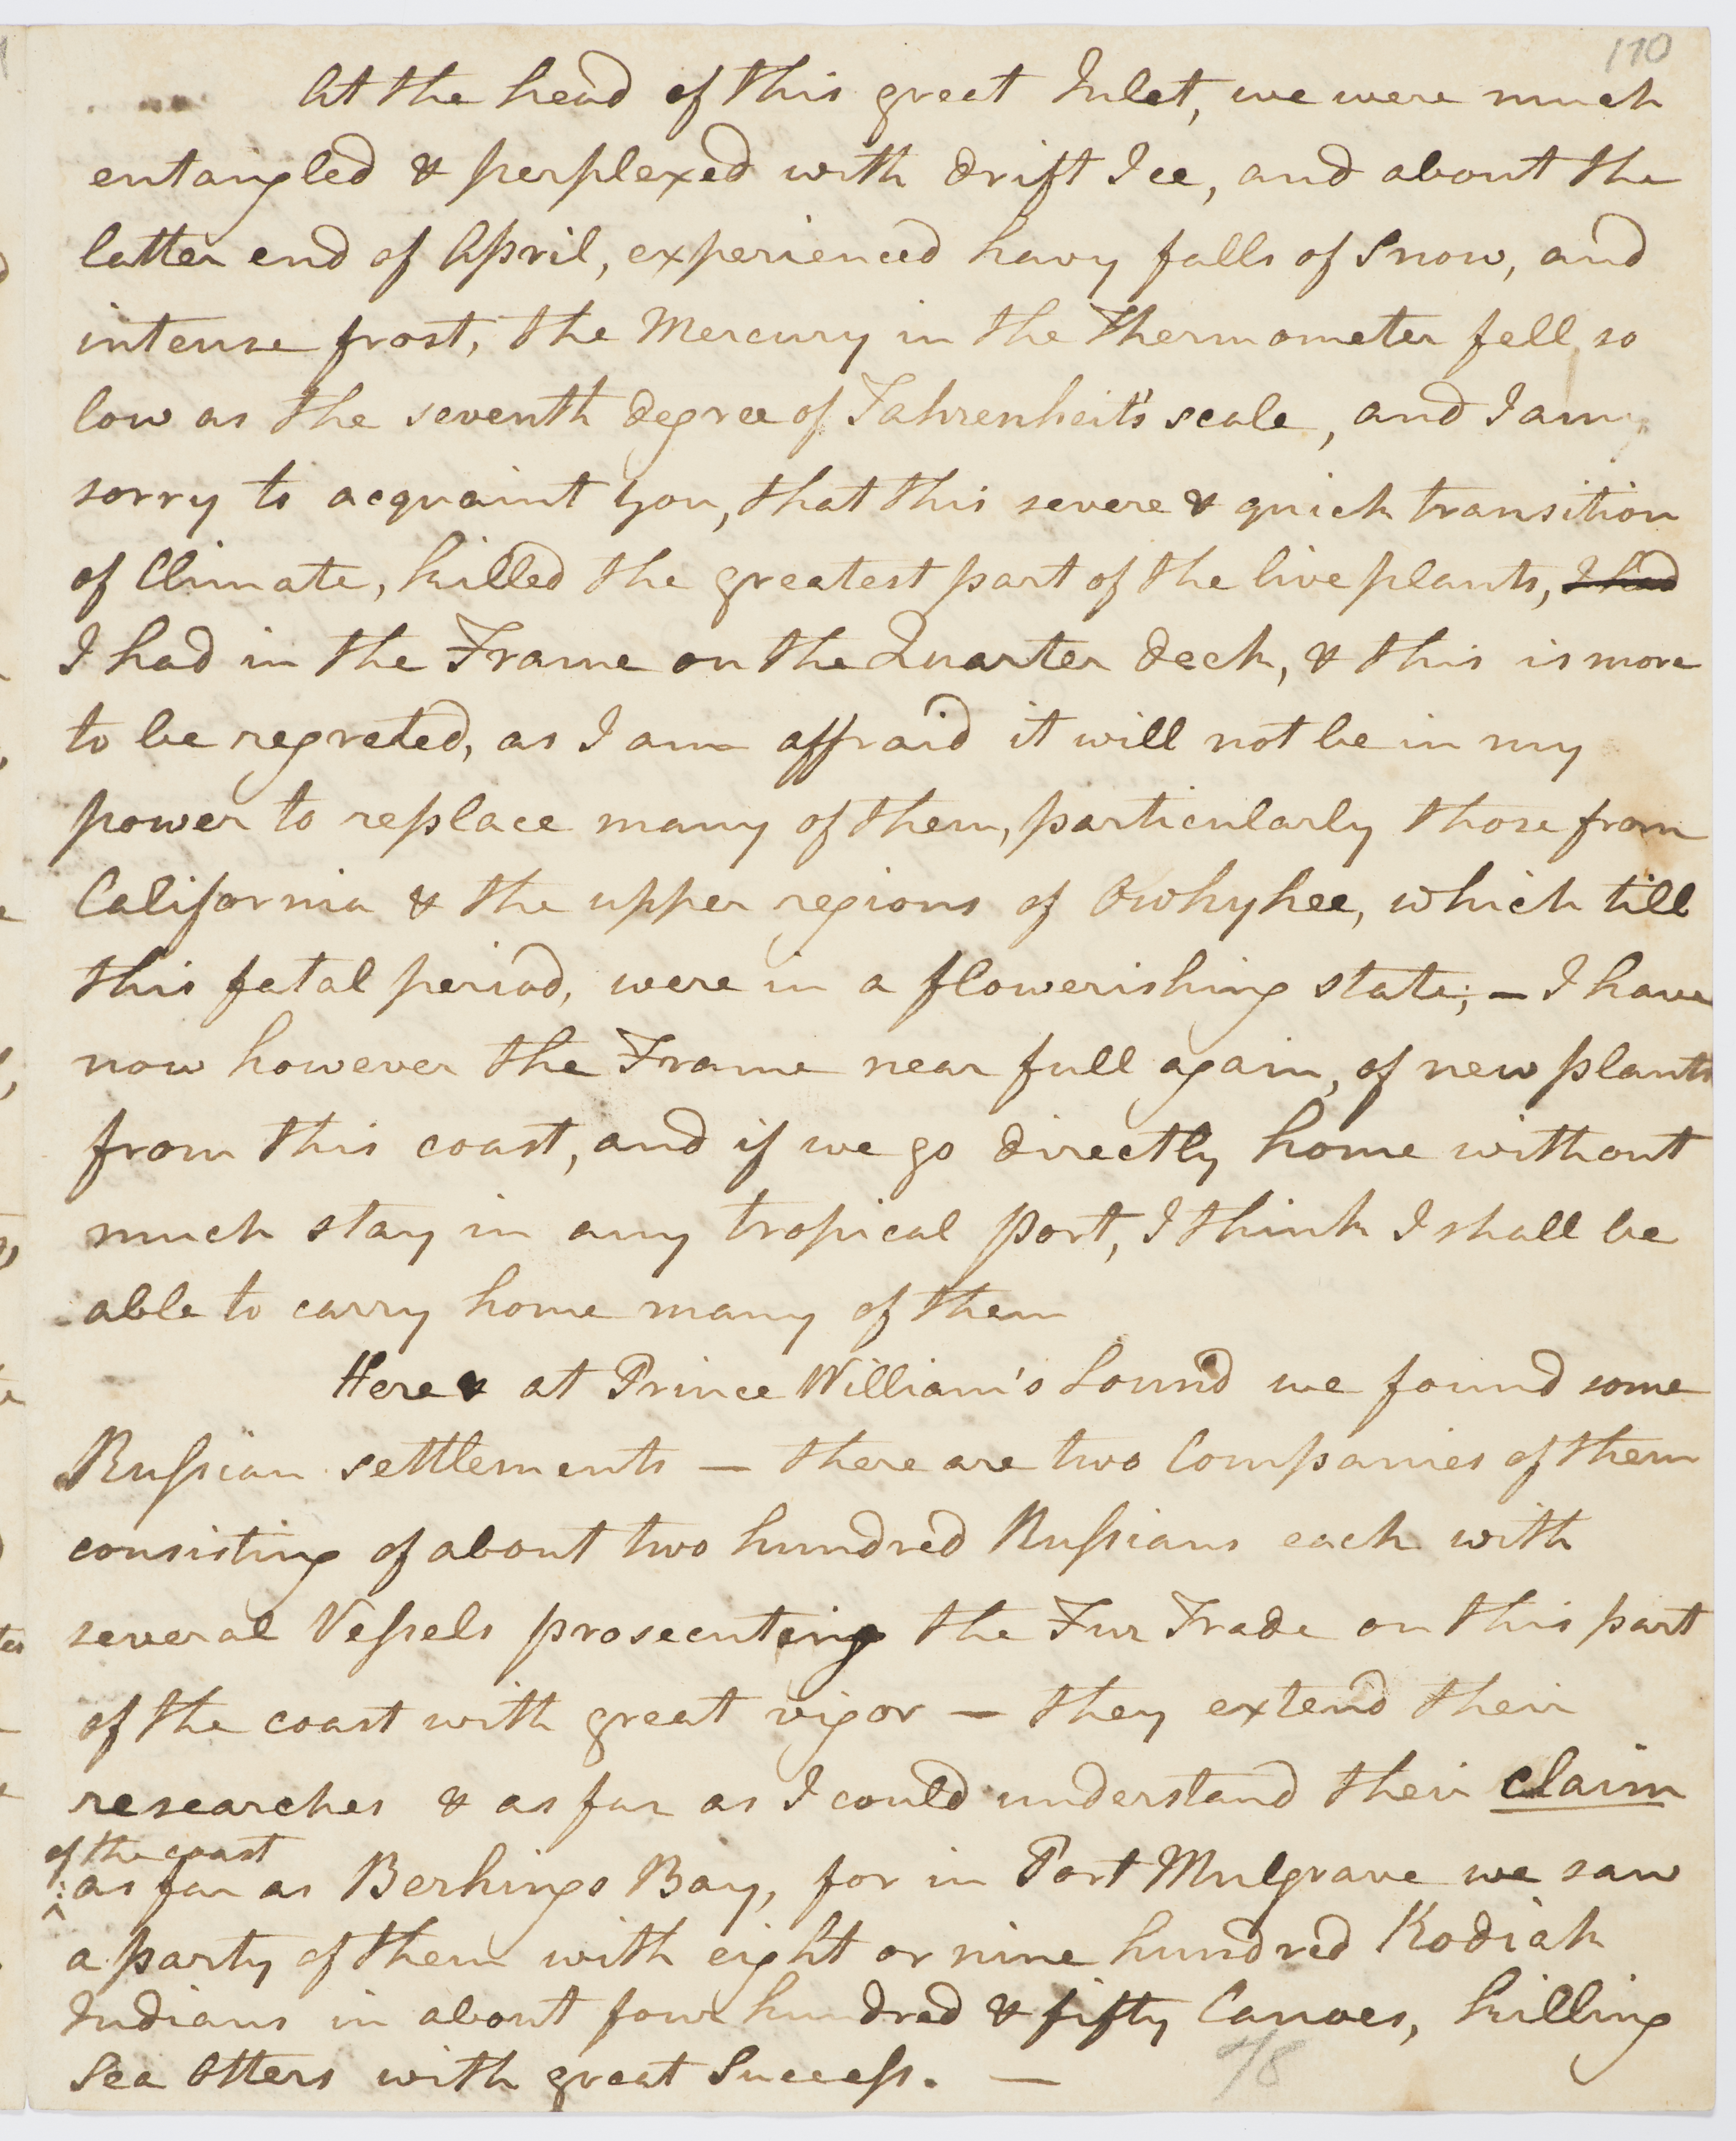 170
At the head of this great Inlet, we were much
entangled & perplexed with drift Ice, and about the
latter end of April, experienced havy falls of Snow, and
intense frost, the Mercury in the Thermometer fell so
low as the seventh degree of Fahrenheit's scale, and I am
sorry to acquaint You, that this severe & quick transition
of Climate, killed the greatest part of the live plants, I had
I had in the Frame on the Quarter deck, & this is more
to be regreted, as I am affraid it will not be in my
power to replace many of them, particularly those from
California & the upper regions of Owhyhee, which till
this fatal period, were in a flowerishing state; — I have
now however the Frame near full again, of new plants
from this coast, and if we go directly home without
much stay in any tropical port, I think I shall be
able to carry home many of them
Here & at Prince William's Sound we found some
Ruſsian settlements — there are two Companies of them
consisting of about two hundred Ruſsians each with
several Veſsels prosecuting the Fur Trade on this part
of the coast with great vigor — they extend their
researches & as far as I could understand their claim
of the coast
as far as Berhings Bay, for in Port Mulgrave we saw
a party of them with eight or nine hundred Kodiak
Indians in about four hundred & fifty Canoes, killing
Sea Otters with great Succeſs. —